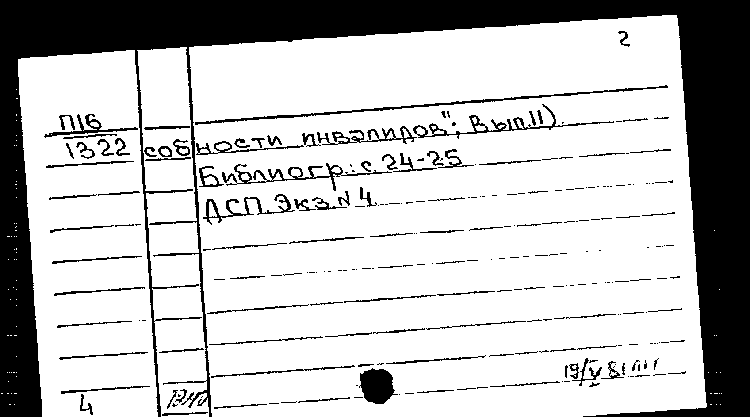 2
П16
1322 собности инвалидов"; Вып.11)
Библиогр.: с. 24-25
ДСП. Экз. N 4
19/V 81
4